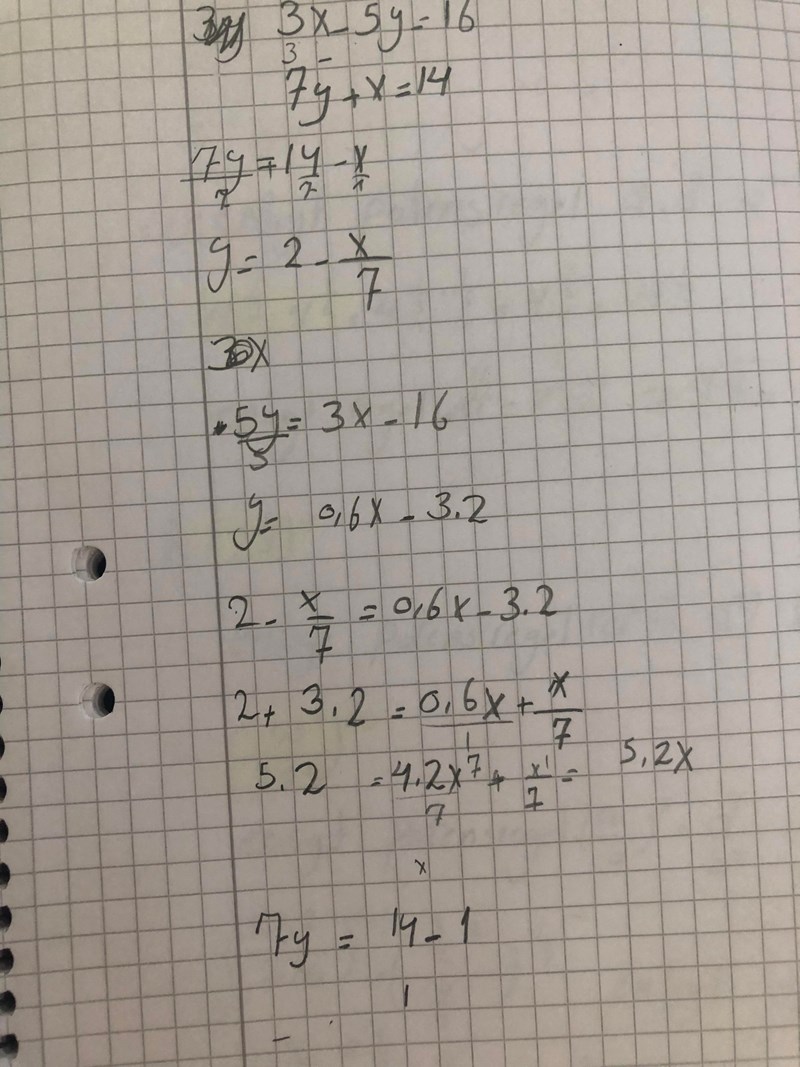 3x - 5y = 16
3 -
7y + x = 14
7y/7 = 14/7 - x/7
y = 2 - x/7
x
5y/5 = 3x - 16
y = 0,6x - 3.2
2 - x/7 = 0,6x - 3.2
2 + 3.2 = 0,6x/1 + x/7
5.2 = 4.2x7/7 + x1/7 = 5,2x
x
7y = 14 - 1
1
-